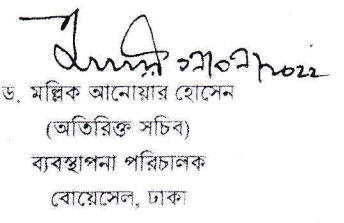 ড. মল্লিক আনোয়ার হোসেন
(অতিরিক্ত সচিব)
ব্যবস্থাপনা পরিচালক
বোয়েসেল, ঢাকা